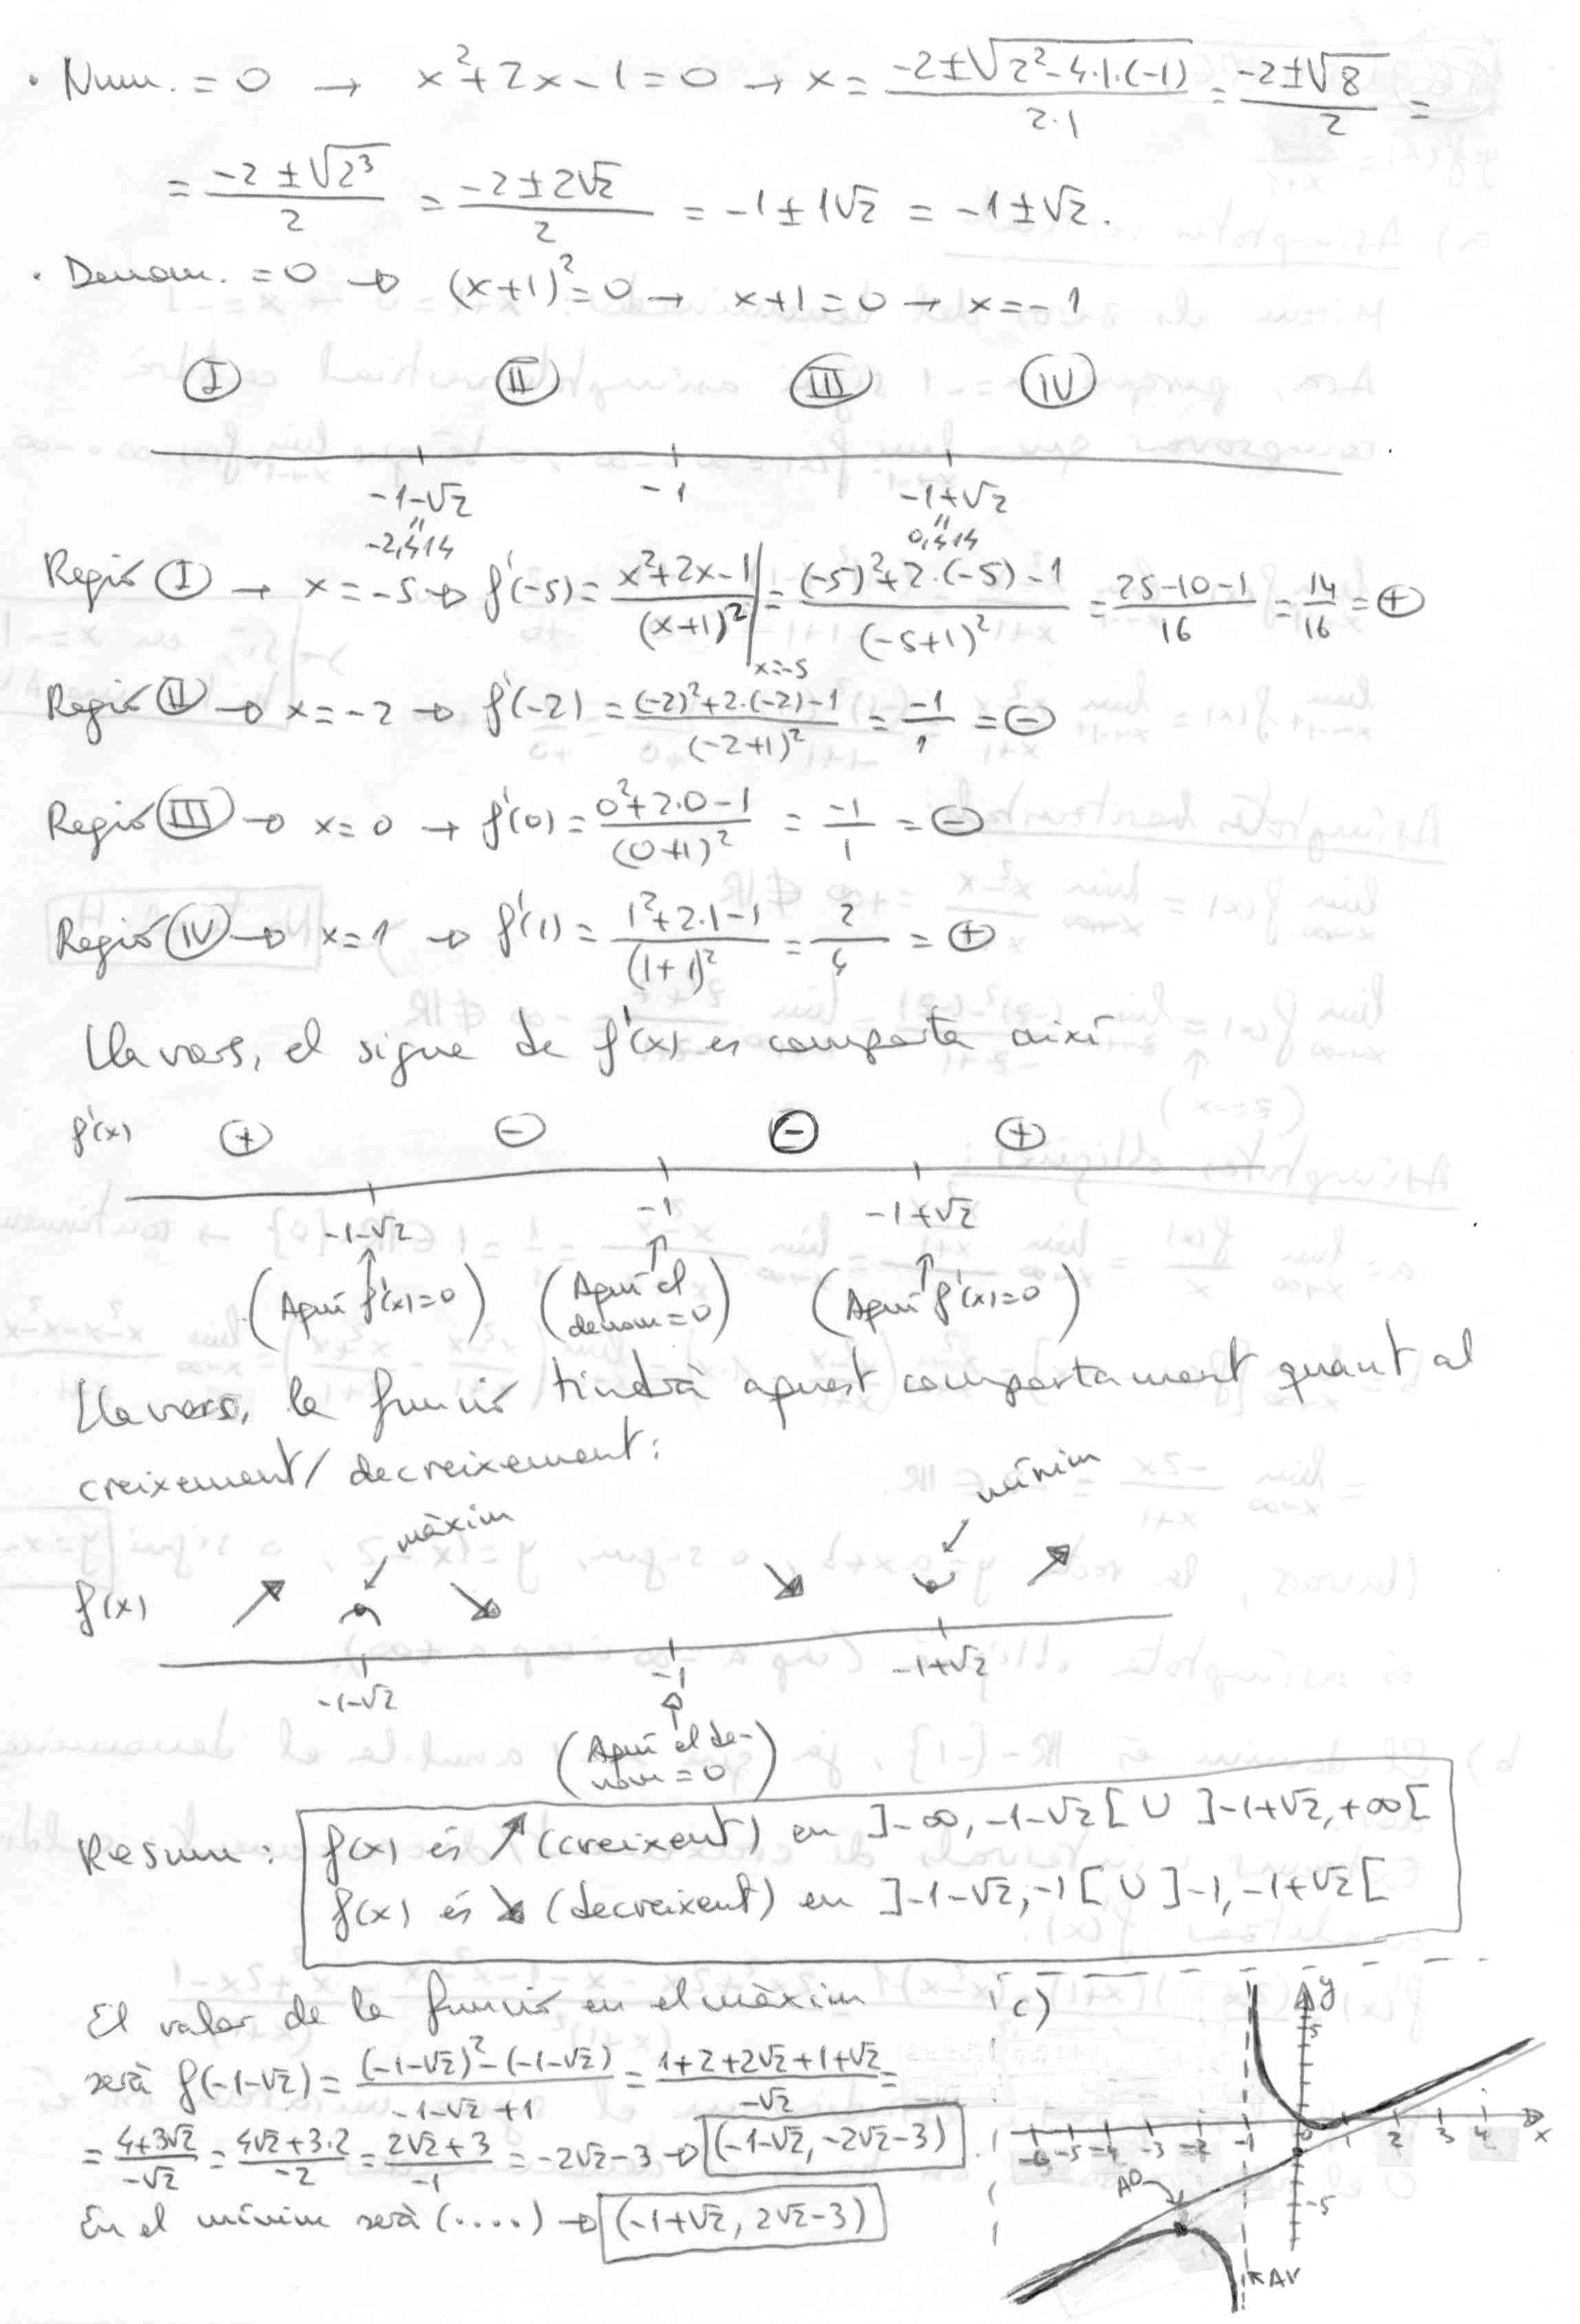 · Num. = 0 → x²+2x-1=0 → x = (-2±√(2²-4·1·(-1)))/(2·1) = (-2±√8)/2 =
= (-2±√2³)/2 = (-2±2√2)/2 = -1±1√2 = -1±√2.
· Denom. = 0 → (x+1)²=0 → x+1=0 → x=-1
I II III IV
-1-√2 -1 -1+√2
" "
-2,414 0,414
Regió I → x=-5 → f'(-5) = (x²+2x-1)/(x+1)² |x=-5 = ((-5)²+2·(-5)-1)/(-5+1)² = (25-10-1)/16 = 14/16 = ⊕
Regió II → x=-2 → f'(-2) = ((-2)²+2·(-2)-1)/(-2+1)² = -1/1 = ⊖
Regió III → x=0 → f'(0) = (0²+2·0-1)/(0+1)² = -1/1 = ⊖
Regió IV → x=1 → f'(1) = (1²+2·1-1)/(1+1)² = 2/4 = ⊕
Llavors, el signe de f'(x) es comporta així
f'(x) ⊕ ⊖ ⊖ ⊕
-1-√2 -1 -1+√2
↑ ↑ ↑
(Aquí f'(x)=0) (Aquí el denom=0) (Aquí f'(x)=0)
Llavors, la funció tindrà aquest comportament quant al
creixement/decreixement:
màxim mínim
f(x) ↗ ↘ ↘ ↗
-1-√2 -1 -1+√2
(Aquí el de-
nom=0)
Resum: f(x) és ↗ (creixent) en ]-∞, -1-√2[ ∪ ]-1+√2, +∞[
f(x) és ↘ (decreixent) en ]-1-√2, -1[ ∪ ]-1, -1+√2[
El valor de la funció en el màxim
serà f(-1-√2) = ((-1-√2)²-(-1-√2))/(-1-√2+1) = (1+2+2√2+1+√2)/(-√2) =
= (4+3√2)/(-√2) = (4√2+3·2)/(-2) = (2√2+3)/(-1) = -2√2-3 → (-1-√2, -2√2-3)
En el mínim serà (....) → (-1+√2, 2√2-3)
c)
y
5
-6 -5 -4 -3 -2 -1 0 1 2 3 4 x
AO
-5
AV